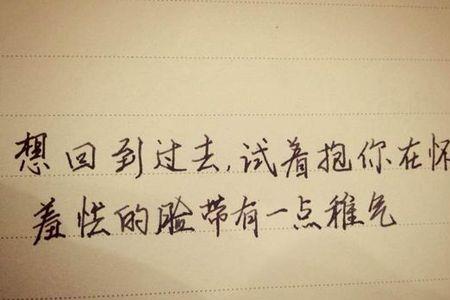 想回到过去,试着抱你在怀
羞怯的脸带有一点稚气